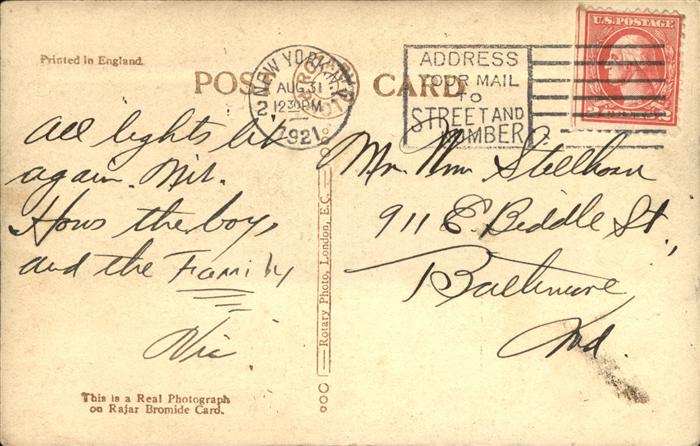 Printed in England.
POST CARD
NEW YORK, N.Y.
AUG 31
2 12 30 PM
1921
ADDRESS
YOUR MAIL
TO
STREET AND
NUMBER
U.S. POSTAGE
All lights lit
again.
Hows the boys
and the Family
Vic
Mr. Wm
911 E. Biddle St.,
Baltimore,
Md.
Rotary Photo, London, E.C.
This is a Real Photograph
on Rajar Bromide Card.